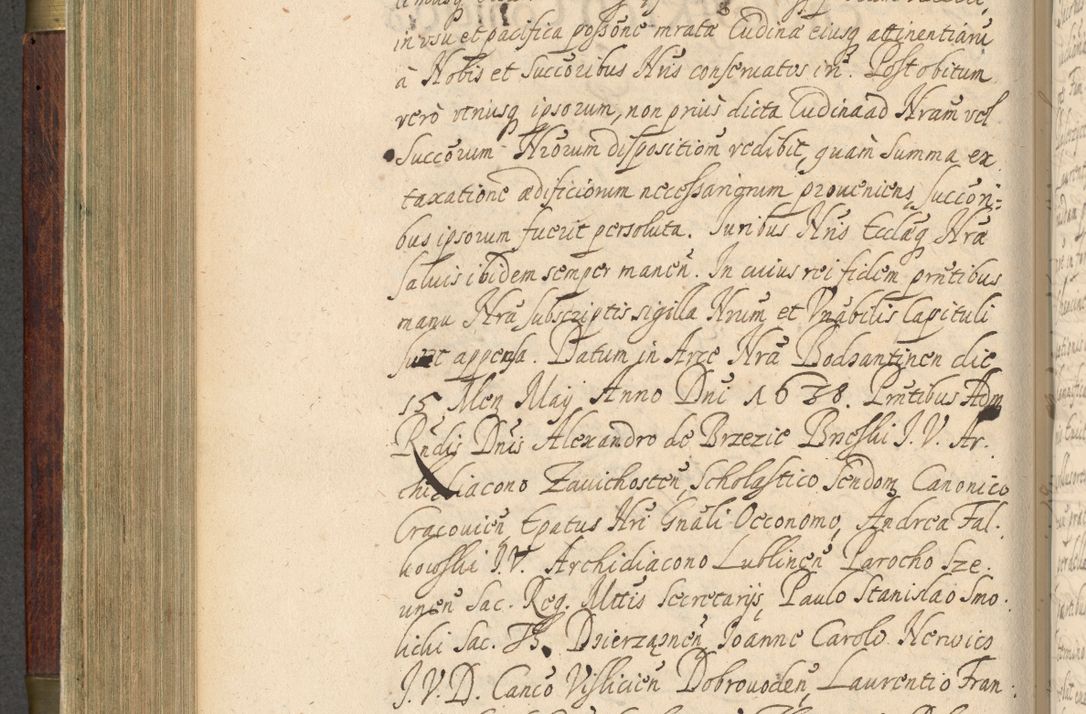 in usu et pacifica possone mrata Cudina eiusq attinentiaru
à Nobis et Succoribus Nris conseruatos iri. Post obitum
verò vtriusq ipsorum, non prius dicta Cudina ad Nram vel
Succorum Nrorum dispositiom redibit, quàm Summa ex
taxatione ædificiorum necessariorum proueniens, succori=
bus ipsorum fuerit persoluta. Iuribus Nris Ecclæq Nræ
saluis ibidem semper manen. In cuius rei fidem prntibus
manu Nra subscriptis sigilla Nrum et Vnabilis Capituli
sunt appensa. Datum in Arce Nra Bodzantinen die
15 Men Maij Anno Dni 1638. Prntibus Adm
Rndis Dnis Alexandro de Brzezie Brzeski I. V. Ar.
chidiacono Zauichosten, Scholastico Sendom, Canonico
Cracouien, Epatus Nri Gnali Oeconomo, Andrea Fal.
kowski I. V. Archidiacono Lublinen Parocho Sze.
unen Sac. Reg. Mttis Secretarijs, Paulo Stanislao Smo.
licki Sac. Th. Dzierząznen, Ioanne Carolo Herwico
I. V. D. Canco Vislicien Dobrowoden, Laurentio Fran.